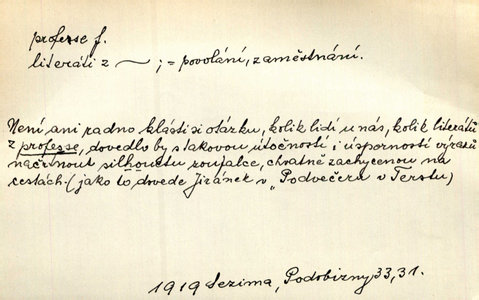 professe f.
literáti z ~ ; = povolání, zaměstnání.
Není ani radno klásti si otázku, kolik lidí u nás, kolik literátů
z professe, dovedlo by s takovou útočností i úsporností výrazů
načrtnout silhouetu zoufalce, chvatně zachycenou na
cestách (jako to dovede Jiránek v „Podvečeru v Terstu)
1919 Sezima, Podobizny 33, 31.